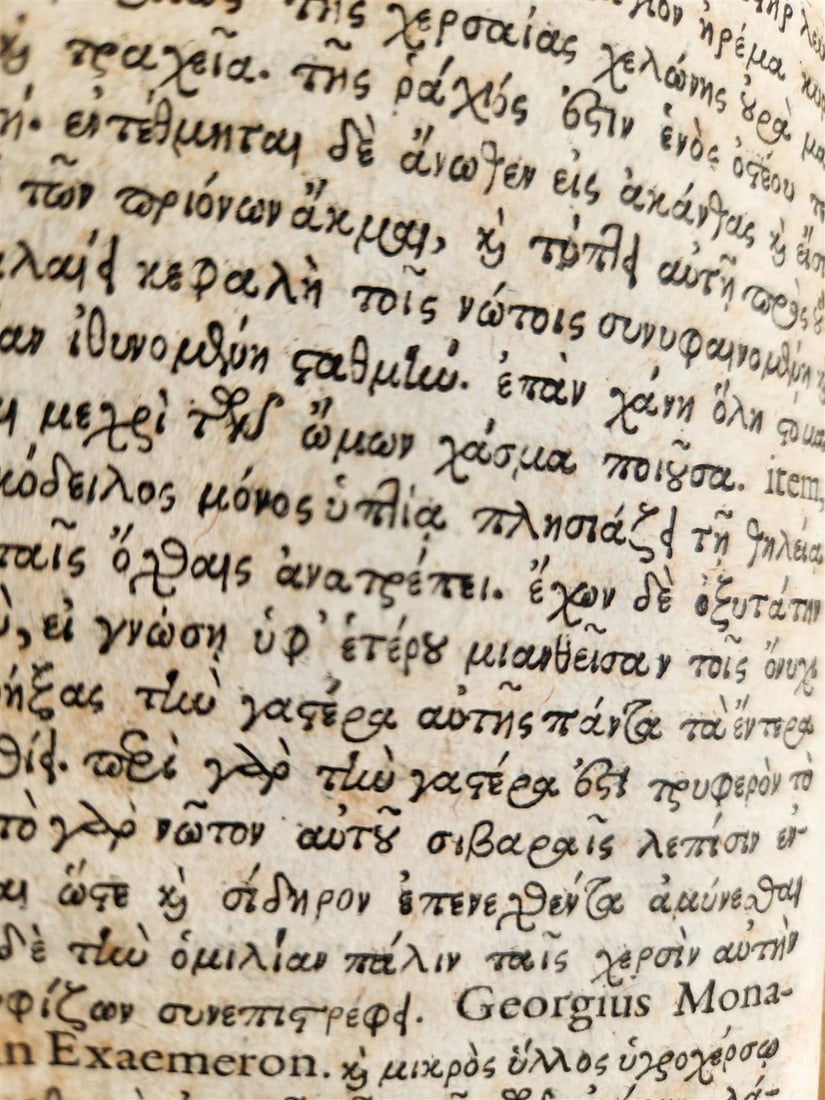 τῆς χερσαίας χελώνης οὐρὰ
καὶ τραχεῖα. τῆς ῥάχιός ἐστιν ἑνὸς ὀστέου
ἐντέθμηται δὲ ἄνωθεν εἰς ἀκάνθας καὶ
τῶν πριόνων ἄκμαι, καὶ τύπτει αὐτῇ πρὸς
κεφαλὴ τοῖς νώτοις συνυφαινομένη
ἰθυνομένη σταθμίω. ἐπὰν χάνη ὅλη
μεχρὶ τῶν ὤμων χάσμα ποιοῦσα. item,
μόνος ὑπτίᾳ πλησιάζει τῇ θηλείᾳ
ταῖς ὄχθαις ἀνατρέπει. ἔχων δὲ ὀξυτάτην
εἰ γνώση ὑφ' ἑτέρου μιανθεῖσαν τοῖς
τὴν γαστέρα αὐτῆς πάντα τὰ ἔντερα
περὶ γὰρ τὴν γαστέρα ἐστὶ τρυφερὸν τὸ
τὸ γὰρ νῶτον αὐτοῦ σιβαραῖς λεπίσιν
ὥστε καὶ σίδηρον ἐπενεχθέντα ἀμύνεσθαι
δὲ τὴν ὁμιλίαν πάλιν ταῖς χερσὶν αὐτὴν
συνεπιστρέφει. Georgius Mona-
Exaemeron. καὶ μικρὸς ὕλλος ὑγροχέρσῳ